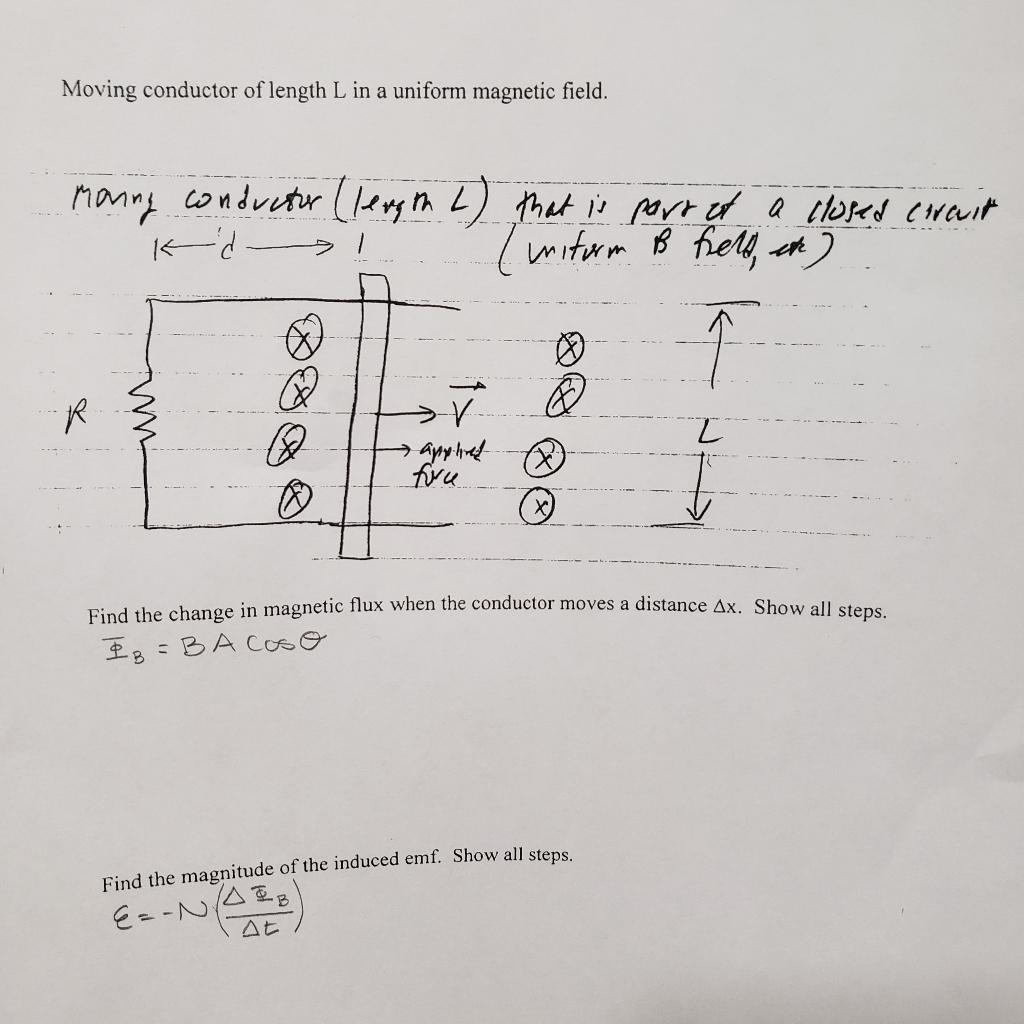 Moving conductor of length L in a uniform magnetic field.
Moving conductor (length L) that is part of a closed circuit
d
(uniform B field, etc)
R
V
applied
force
L
Find the change in magnetic flux when the conductor moves a distance Δx. Show all steps.
Φ_B = BA cosθ
Find the magnitude of the induced emf. Show all steps.
ε = -N(ΔΦ_B/Δt)